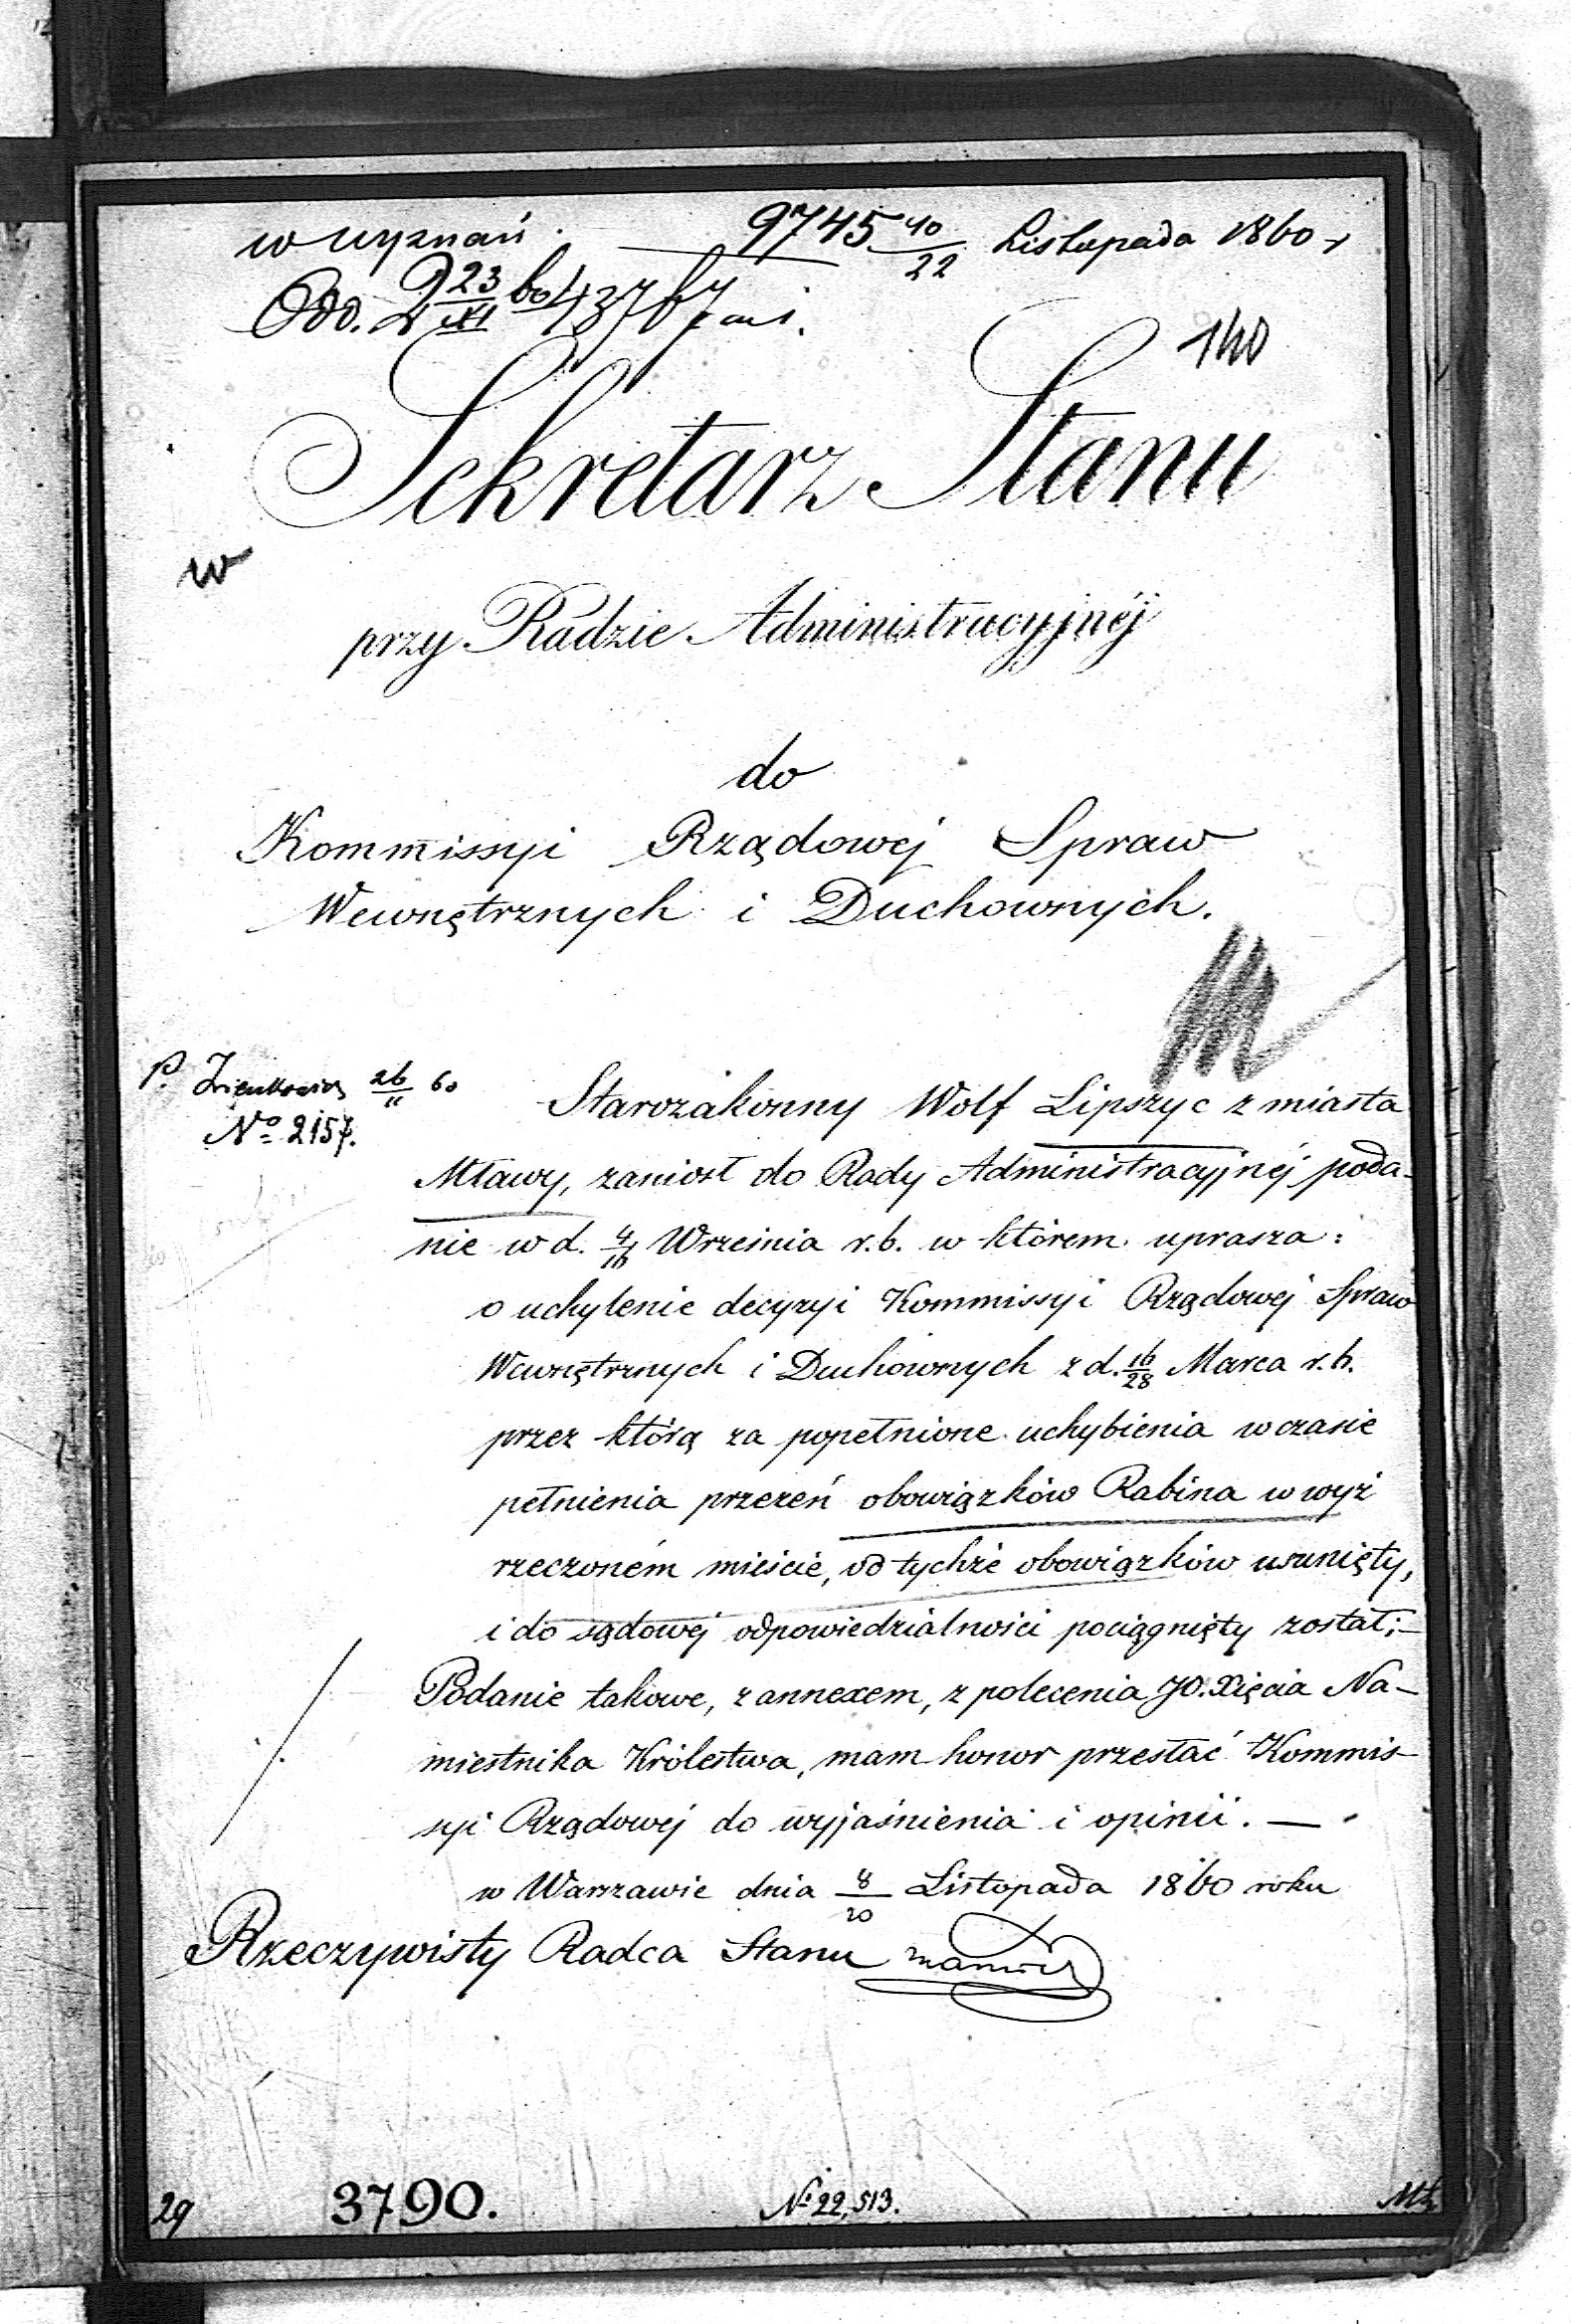 w wyznań. 9745 10/22 Listopada 1860 r
Odd. 23/XI 60 43767
140
Sekretarz Stanu
w
przy Radzie Administracyjnéj
do
Kommissyi Rządowej Spraw
Wewnętrznych i Duchownych.
P. 26/11 60
No 2157.
Starozakonny Wolf Lipszyc z miasta
Mławy, zaniosł do Rady Administracyjnéj poda-
nie w d. 4/16 Września r.b. w którem uprasza:
o uchylenie decyzyi Kommissyi Rządowéj Spraw
Wewnętrznych i Duchownych z d. 16/28 Marca r.b.
przez którą za popełnione uchybienia w czasie
pełnienia przezeń obowiązków Rabina w wyż
rzeczoném mieście, od tychże obowiązków usunięty,
i do sądowéj odpowiedzialności pociągnięty został;—
Podanie takowe, z annexem, z polecenia JO. Xięcia Na-
miestnika Królestwa, mam honor przesłać Kommis-
syi Rządowéj do wyjaśnienia i opinii. —
w Warszawie dnia 8/20 Listopada 1860 roku
Rzeczywisty Radca Stanu
29 3790. No 22,513.